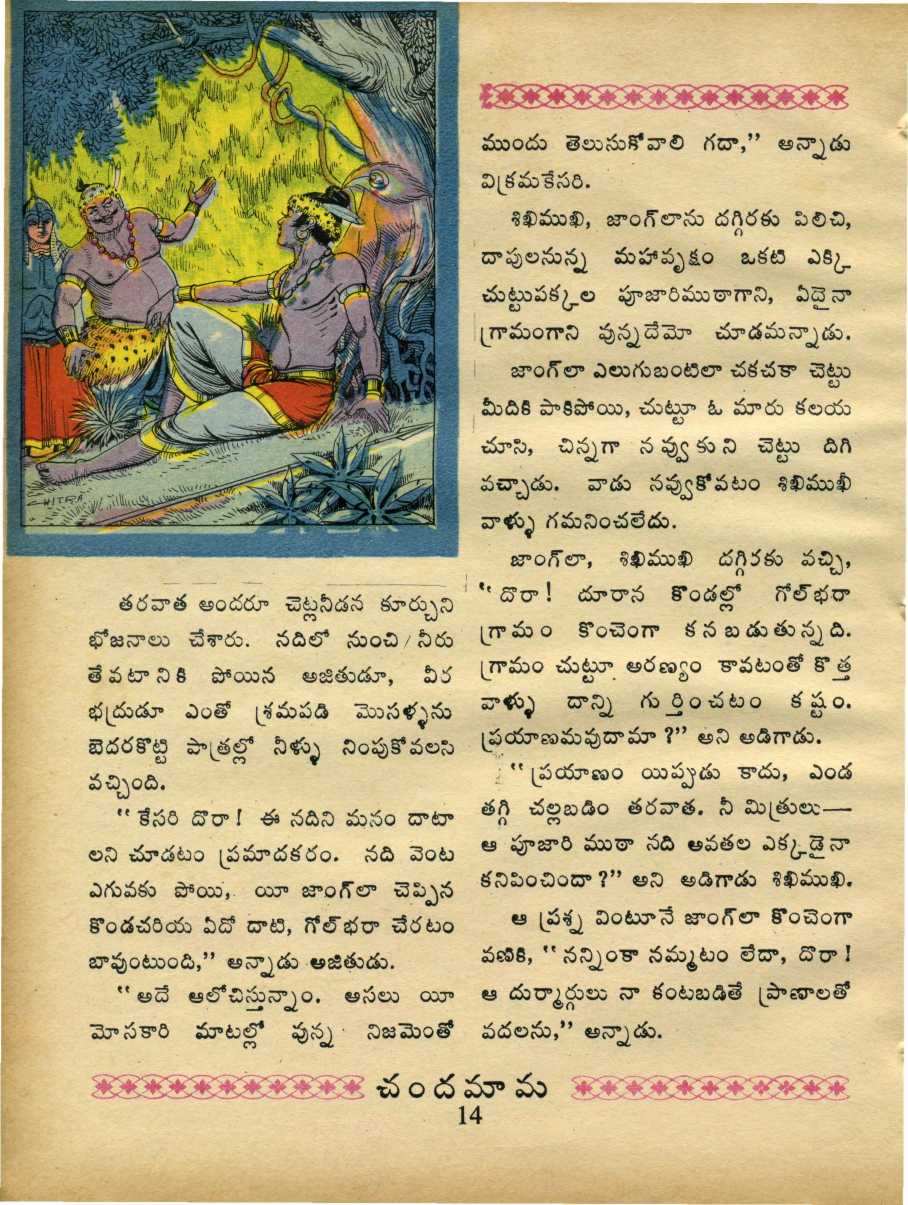 CHITRA
తరవాత అందరూ చెట్లనీడన కూర్చుని
భోజనాలు చేశారు. నదిలో నుంచి నీరు
తేవటానికి పోయిన అజితుడూ, వీర
భద్రుడూ ఎంతో శ్రమపడి మొసళ్ళను
బెదరకొట్టి పాత్రల్లో నీళ్ళు నింపుకోవలసి
వచ్చింది.
“కేసరి దొరా! ఈ నదిని మనం దాటా
లని చూడటం ప్రమాదకరం. నది వెంట
ఎగువకు పోయి, యీ జాంగ్‌లా చెప్పిన
కొండచరియ ఏదో దాటి, గోల్‌భరా చేరటం
బావుంటుంది,” అన్నాడు అజితుడు.
“అదే ఆలోచిస్తున్నాం. అసలు యీ
మోసకారి మాటల్లో వున్న నిజమెంతో
ముందు తెలుసుకోవాలి గదా,” అన్నాడు
విక్రమకేసరి.
శిఖిముఖి, జాంగ్‌లాను దగ్గిరకు పిలిచి,
దాపులనున్న మహావృక్షం ఒకటి ఎక్కి
చుట్టుపక్కల పూజారిముఠాగాని, ఏదైనా
గ్రామంగాని వున్నదేమో చూడమన్నాడు.
జాంగ్‌లా ఎలుగుబంటిలా చకచకా చెట్టు
మీదికి పాకిపోయి, చుట్టూ ఓ మారు కలయ
చూసి, చిన్నగా నవ్వుకుని చెట్టు దిగి
వచ్చాడు. వాడు నవ్వుకోవటం శిఖిముఖీ
వాళ్ళు గమనించలేదు.
జాంగ్‌లా, శిఖిముఖి దగ్గిరకు వచ్చి,
“దొరా! దూరాన కొండల్లో గోల్‌భరా
గ్రామం కొంచెంగా కనబడుతున్నది.
గ్రామం చుట్టూ అరణ్యం కావటంతో కొత్త
వాళ్ళు దాన్ని గుర్తించటం కష్టం.
ప్రయాణమవుదామా?” అని అడిగాడు.
“ప్రయాణం యిప్పుడు కాదు, ఎండ
తగ్గి చల్లబడిం తరవాత. నీ మిత్రులు—
ఆ పూజారి ముఠా నది అవతల ఎక్కడైనా
కనిపించిందా?” అని అడిగాడు శిఖిముఖి.
ఆ ప్రశ్న వింటూనే జాంగ్‌లా కొంచెంగా
వణికి, “నన్నింకా నమ్మటం లేదా, దొరా!
ఆ దుర్మార్గులు నా కంటబడితే ప్రాణాలతో
వదలను,” అన్నాడు.
చందమామ
14